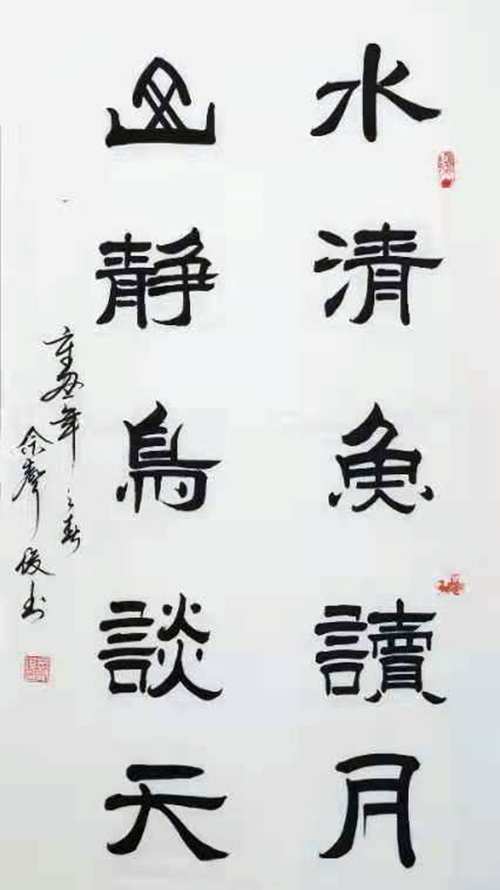 水清魚讀月
山静鳥談天
年之春
余聲俊书